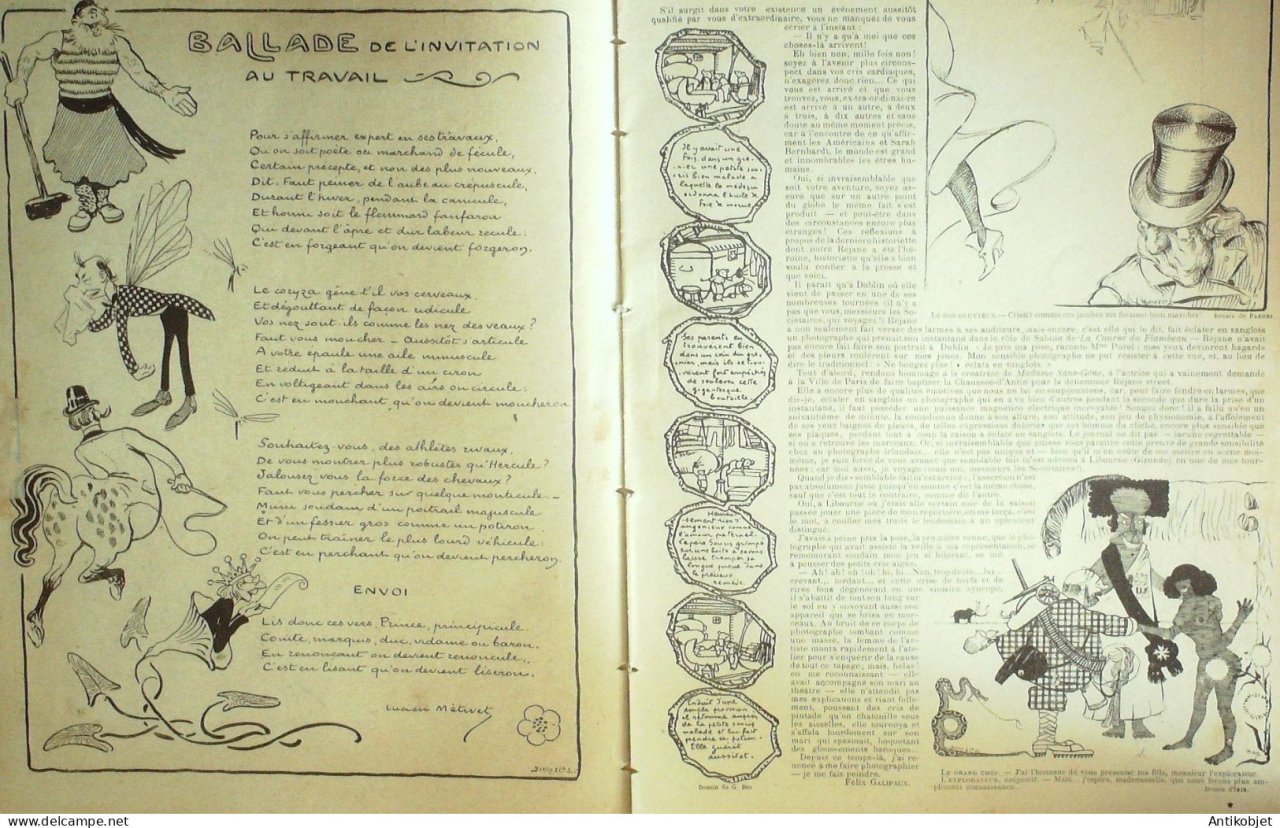 BALLADE DE L'INVITATION
AU TRAVAIL
Pour s'affirmer expert en ses travaux,
Qu'on soit poète ou marchand de fécule,
Certain précepte, et non des plus nouveaux,
Dit: Faut peiner de l'aube au crépuscule,
Durant l'hiver, pendant la canicule,
Et honni soit le flemmard fanfaron
Qui devant l'âpre et dur labeur recule:
C'est en forgeant qu'on devient forgeron.
Le coryza gêne-t'il vos cerveaux,
Et dégouttant de façon ridicule
Vos nez sont-ils comme les nez des veaux?
Faut vous moucher - Aussitôt s'articule
A votre épaule une aile minuscule
Et réduit à la taille d'un ciron
En voltigeant dans les airs on circule:
C'est en mouchant qu'on devient moucheron
Souhaitez-vous, des athlètes rivaux,
De vous montrer plus robustes qu'Hercule?
Jalousez-vous la force des chevaux?
Faut vous percher sur quelque monticule -
Muni soudain d'un poitrail majuscule
Et d'un fessier gros comme un potiron
On peut traîner le plus lourd véhicule:
C'est en perchant qu'on devient percheron.
ENVOI
Lis donc ces vers, Prince, principicule
Comte, marquis, duc, vidame ou baron.
En renonçant on devient renoncule,
C'est en lisant qu'on devient liseron.
Lucien Métivet
Il y avait une
fois, dans un gre-
nier une petite sou-
ris bien malade à
laquelle le médecin
ordonna l'huile de
foie de morue
Ses parents en
trouvèrent bien
dans un coin du gre-
nier, mais ils se trou-
vèrent fort empêchés
de soulever cette
gigantesque
bouteille
Heureu-
sement rien d'
ingénieux comme
l'amour paternel.
Le père Souris grimpa
sur une boîte à savons
laissa tremper sa
longue queue dans
le précieux
remède
Enduit d'une
ample provision
il retourna auprès
de la petite souris
malade et lui fait
prendre sa potion.
Elle guérit
aussitôt.
Dessin de G. Bri
S'il surgit dans votre existence un événement aussitôt
qualifié par vous d'extraordinaire, vous ne manquez de vous
écrier à l'instant:
— Il n'y a qu'à moi que ces
choses-là arrivent!
Eh bien non, mille fois non!
soyez à l'avenir plus circons-
pect dans vos cris cardiaques,
n'exagérez donc rien... Ce qui
vous est arrivé et que vous
trouvez, vous, ex-tra-or-di-nai-re
est arrivé à un autre, à deux
à trois, à dix autres et sans
doute au même moment précis,
car à l'encontre de ce qu'affir-
ment les Américains et Sarah
Bernhardt, le monde est grand
et innombrables les êtres hu-
mains.
Oui, si invraisemblable que
soit votre aventure, soyez as-
suré que sur un autre point
du globe le même fait s'est
produit — et peut-être dans
des circonstances encore plus
étranges! Ces réflexions à
propos de la dernière historiette
dont notre Réjane a été l'hé-
roïne, historiette qu'elle a bien
voulu confier à la presse et
que voici.
Il paraît qu'à Dublin où elle
vient de passer en une de ses
nombreuses tournées (il n'y a
pas que vous, messieurs les So-
ciétaires, qui voyagez!) Réjane
a non seulement fait verser des larmes à ses auditeurs, mais encore, c'est elle qui le dit, fait éclater en sanglots
un photographe qui prenait son instantané dans le rôle de Sabine de La Course du Flambeau — Réjane n'avait
pas encore fait faire son portrait à Dublin. « Je pris ma pose, raconte Mme Porel; mes yeux devinrent hagards
et des pleurs roulèrent sur mes joues. Mon sensible photographe ne put résister à cette vue, et, au lieu de
dire le traditionnel: « Ne bougez plus! » éclata en sanglots. »
Tout d'abord, rendons hommage à la créatrice de Madame Sans-Gêne, à l'actrice qui a vainement demandé
à la Ville de Paris de faire baptiser la Chaussée-d'Antin pour la dénommer Réjane street.
Elle a encore plus de qualités émotives que nous ne lui soupçonnions, car, pour faire fondre en larmes, que
dis-je, éclater en sanglots un photographe qui en a vu bien d'autres pendant la seconde que dure la prise d'un
instantané, il faut posséder une puissance magnético électrique incroyable! Songez donc! il a fallu qu'en un
soixantième de minute, la comédienne donnât à son allure, son attitude, son jeu de physionomie, à l'affolement
de ses yeux baignés de pleurs, de telles expressions douloureuses que cet homme du cliché, encore plus sensible que
ses plaques, perdant tout à coup la raison a éclaté en sanglots. Le journal ne dit pas — lacune regrettable —
si on a retrouvé les morceaux. Or, si invraisemblable que puisse vous paraître cette preuve de grande sensibilité
chez un photographe irlandais... elle n'est pas unique et — bien qu'il m'en coûte de me mettre en scène moi-
même, je suis forcé de vous avouer que semblable fait m'est advenu à Libourne (Gironde) en une de mes tour-
nées; car moi aussi, je voyage (mais non, messieurs les Sociétaires!).
Quand je dis « semblable fait m'est arrivé », l'assertion n'est
pas absolument juste puisqu'en somme c'est la même chose,
sauf que c'est tout le contraire, comme dit l'autre.
Oui, à Libourne où j'étais allé certain soir de la saison
passée jouer une pièce de mon répertoire, on me força, c'est
le mot, à confier mes traits le lendemain à un opérateur
distingué.
J'avais à peine pris la pose, la première venue, que le pho-
tographe qui avait assisté la veille à ma représentation, se
remémorant soudain mon jeu si hilarant, se mit
à pousser des petits cris aigus.
— Ah! ah! oh! oh! hi, hi... Non, trop drôle... lui...
crevant... tordant... et cette crise de nerfs et de
rires fous dégénérant en une sinistre syncope,
il s'abattit de tout son long sur
le sol en y envoyant aussi son
appareil qui se brisa en mor-
ceaux. Au bruit de ce corps de
photographe tombant comme
une masse, la femme de l'ar-
tiste monta rapidement à l'ate-
lier pour s'enquérir de la cause
de tout ce tapage; mais, hélas!
en me reconnaissant — elle
avait accompagné son mari au
théâtre — elle n'attendit pas
mes explications et riant folle-
ment, poussant des cris de
pintade qu'on chatouille sous
les aisselles, elle tournoya et
s'affala lourdement sur son
mari qui spasmait, hoquetant
des gloussements baroques...
Depuis ce temps-là, j'ai re-
noncé à me faire photographier
— je me fais peindre.
Félix Galipaux.
Le mos goutteux. — Cristi! comme ces jambes me feraient bien marcher! Dessin de Fabono
Le grand chef. — J'ai l'honneur de vous présenter ma fille, monsieur l'explorateur.
L'explorateur, empressé. — Mais... j'espère, mademoiselle, que nous ferons plus am-
plement connaissance...
Dessin d'Ibis.
Antikobjet